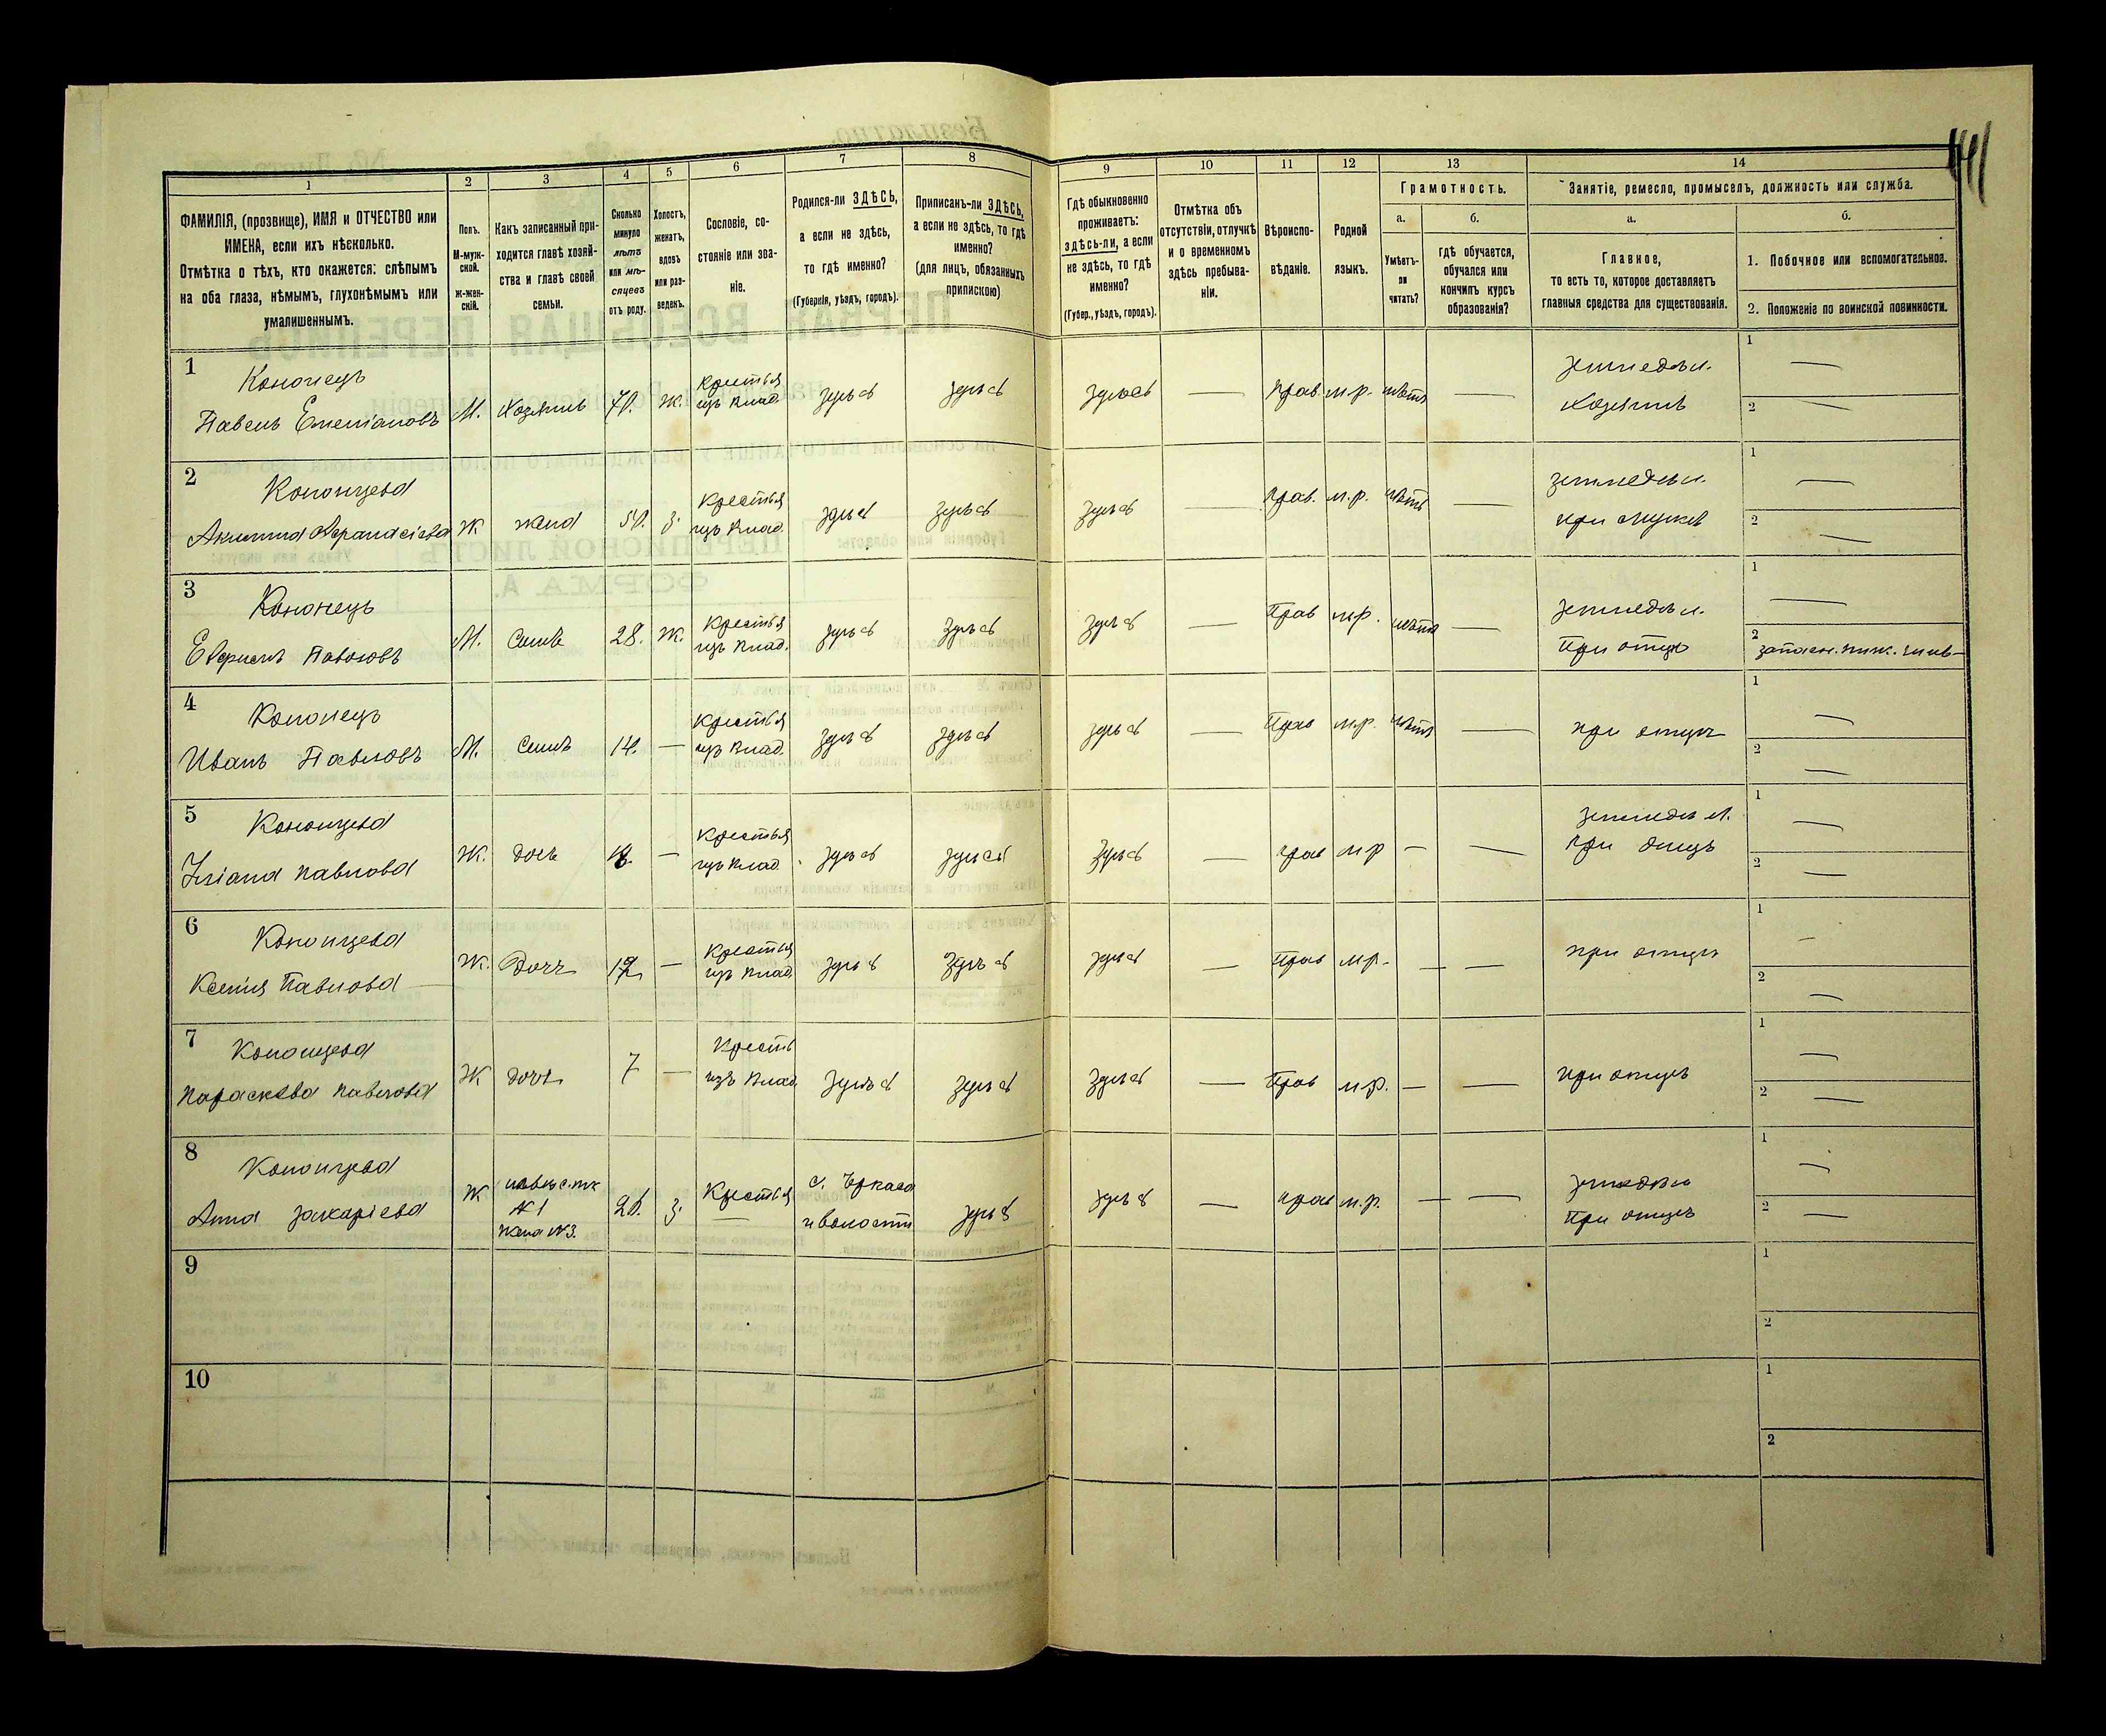 1 2 3 4 5 6 7 8 9 10 11 12 13 14
ФАМИЛІЯ, (прозвище), ИМЯ и ОТЧЕСТВО или
ИМЕНА, если ихъ нѣсколько.
Отмѣтка о тѣхъ, кто окажется: слѣпымъ
на оба глаза, нѣмымъ, глухонѣмымъ или
умалишеннымъ.
Полъ.
М-муж-
ской.
ж-жен-
скій.
Какъ записанный при-
ходится главѣ хозяй-
ства и главѣ своей
семьи.
Сколько
минуло
лѣтъ
или мѣ-
сяцевъ
отъ роду.
Холостъ,
женатъ,
вдовъ
или раз-
веденъ.
Сословіе, со-
стояніе или зва-
ніе.
Родился-ли ЗДѢСЬ,
а если не здѣсь,
то гдѣ именно?
(Губернія, уѣздъ, городъ).
Приписанъ-ли ЗДѢСЬ,
а если не здѣсь, то гдѣ
именно?
(для лицъ, обязанныхъ
припискою)
Гдѣ обыкновенно
проживаетъ:
здѣсь-ли, а если
не здѣсь, то гдѣ
именно?
(Губер., уѣздъ, городъ).
Отмѣтка объ
отсутствіи, отлучкѣ
и о временномъ
здѣсь пребыва-
ніи.
Вѣроиспо-
вѣданіе.
Родной
языкъ.
Грамотность.
а.
Умѣетъ-
ли
читать?
б.
Гдѣ обучается,
обучался или
кончилъ курсъ
образованія?
Занятіе, ремесло, промыселъ, должность или служба.
а.
Главное,
то есть то, которое доставляетъ
главныя средства для существованія.
б.
1. Побочное или вспомогательное.
2. Положеніе по воинской повинности.
1
Кононецъ
Павелъ Емеліановъ
М. Хозяинъ 70. Ж.
Крестья
изъ влад.
здѣсь здѣсь здѣсь — прав. м.р. нѣтъ —
земледѣл.
хозяинъ
1 —
2 —
2
Кононцева
Акилина Афанасіева
Ж жена 50. з.
Крестья
изъ влад.
здѣсь здѣсь здѣсь прав. м.р. нѣтъ —
земледѣл.
при мужѣ
1 —
2 —
3
Кононецъ
Ефримъ Павловъ
М. Сынъ 28. Ж.
Крестья
изъ влад.
здѣсь здѣсь здѣсь — Прав м.р. нѣтъ —
земледѣл.
При отцѣ
1 —
2 запасн. ниж. чинъ
4
Кононецъ
Иванъ Павловъ
М. Сынъ 14. —
Крестья
изъ влад.
здѣсь здѣсь здѣсь — Прав м.р. нѣтъ —
при отцѣ
1 —
2 —
5
Кононцева
Уліана Павлова
Ж. дочь —
Крестья
изъ влад.
здѣсь здѣсь здѣсь — прав м р — —
земледѣл.
При отцѣ
1 —
2 —
6
Кононцева
Ксенія Павлова
Ж. Дочь 12 —
Крестья
изъ влад
здѣсь здѣсь здѣсь — Прав м р. — —
при отцѣ
1 —
2 —
7
Кононцева
Параскева Павлова
Ж дочь 7 —
Крестья
изъ влад.
здѣсь здѣсь здѣсь — Прав м.р. — —
при отцѣ
1 —
2 —
8
Кононцева
Анна Захаріева
Ж
невѣстк
№ 1
жена №3.
з.
Крестья
—
и волости
здѣсь здѣсь — прав м.р. — —
земледѣл
При отцѣ
1 —
2 —
9
1
2
10
1
2